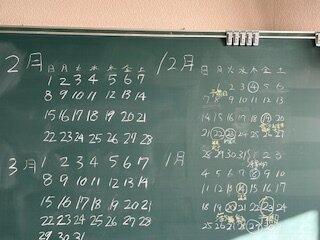 2月
日 月 火 水 木 金 土
1 2 3 4 5 6 7
8 9 10 11 12 13 14
15 16 17 18 19 20 21
22 23 24 25 26 27 28
3月
1 2 3 4 5 6 7
8 9 10 11 12 13 14
15 16 17 18 19 20 21
22 23 24 25 26 27 28
29 30 31
12月
日 月 火 水 木 金 土
1 2 3 4 5 6
7 8 9 10 11 12 13
14 15 16 17 18 19 20
21 22 23 24 25 26 27
28 29 30 31
1月
1 2 3
4 5 6 7 8 9 10
11 12 13 14 15 16 17
18 19 20 21 22 23 24
25 26 27 28 29 30 31